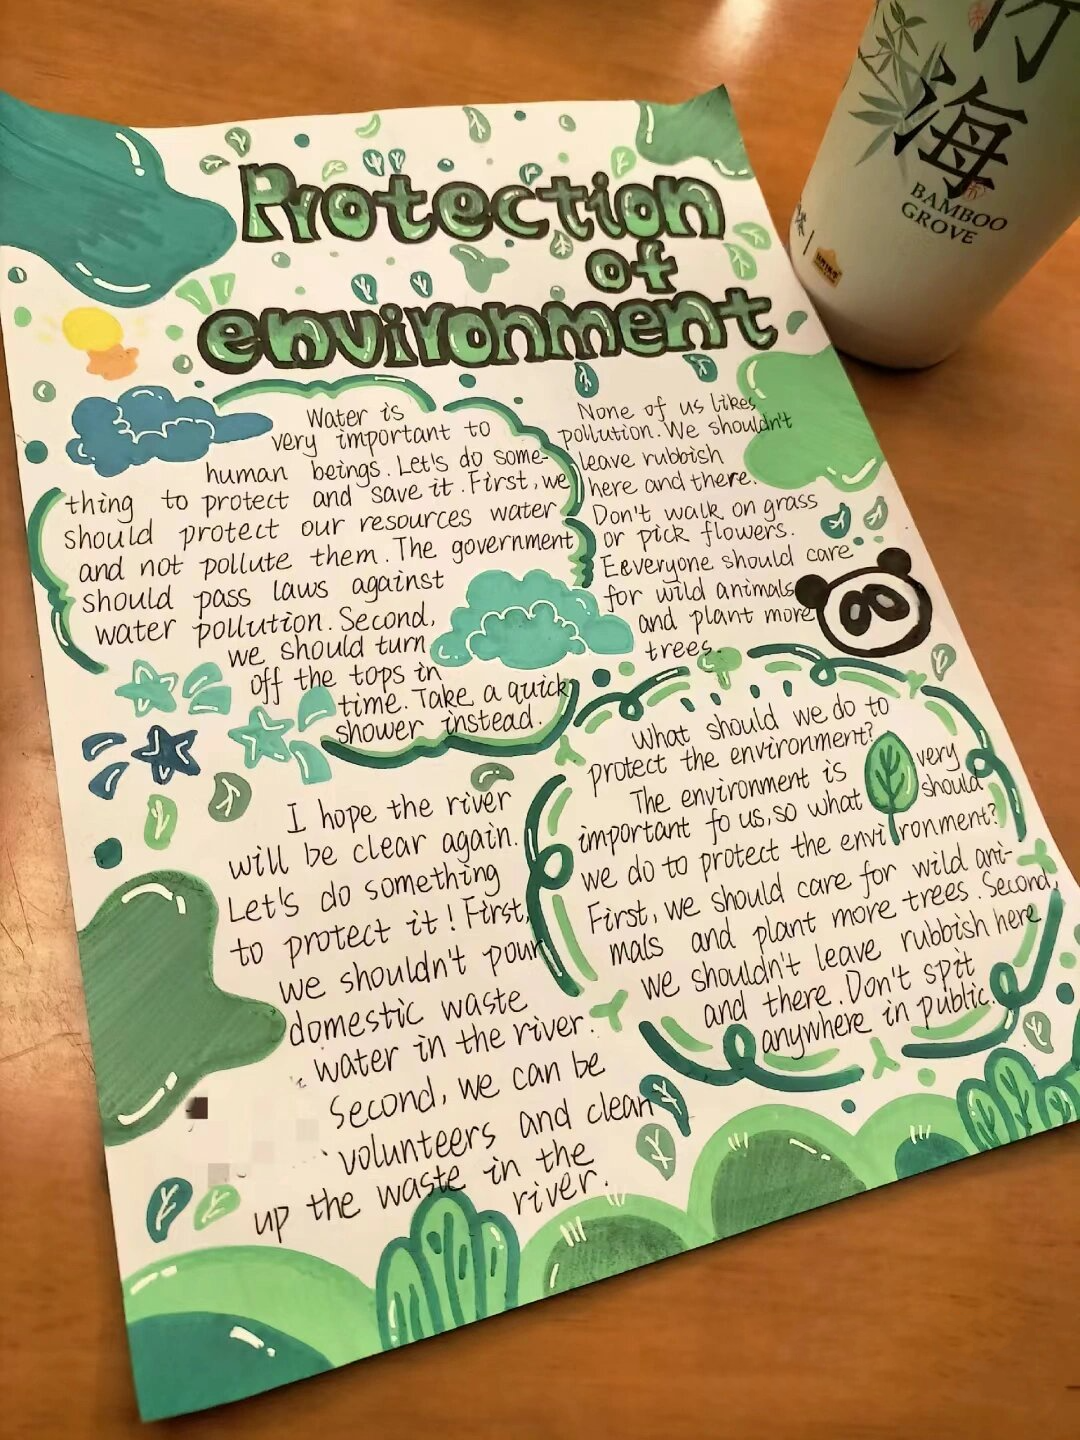 Protection
of
environment
Water is
very important to
human beings. Let's do some-
thing to protect and save it. First, we
should protect our resources water
and not pollute them. The government
should pass laws against
water pollution. Second,
we should turn
off the tops in
time. Take a quick
shower instead.
None of us likes
pollution. We shouldn't
leave rubbish
here and there.
Don't walk on grass
or pick flowers.
Eeveryone should care
for wild animals
and plant more
trees.
I hope the river
will be clear again.
Let's do something
to protect it! First,
we shouldn't pour
domestic waste
water in the river.
Second, we can be
volunteers and clean
up the waste in the
river.
What should we do to
protect the environment?
The environment is very
important fo us, so what should
we do to protect the environment?
First, we should care for wild ani-
mals and plant more trees. Second,
we shouldn't leave rubbish here
and there. Don't spit
anywhere in public.
竹
海
BAMBOO
GROVE